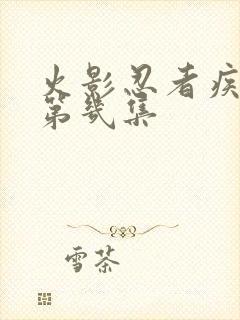 火影忍者疾
第几集
雪茶